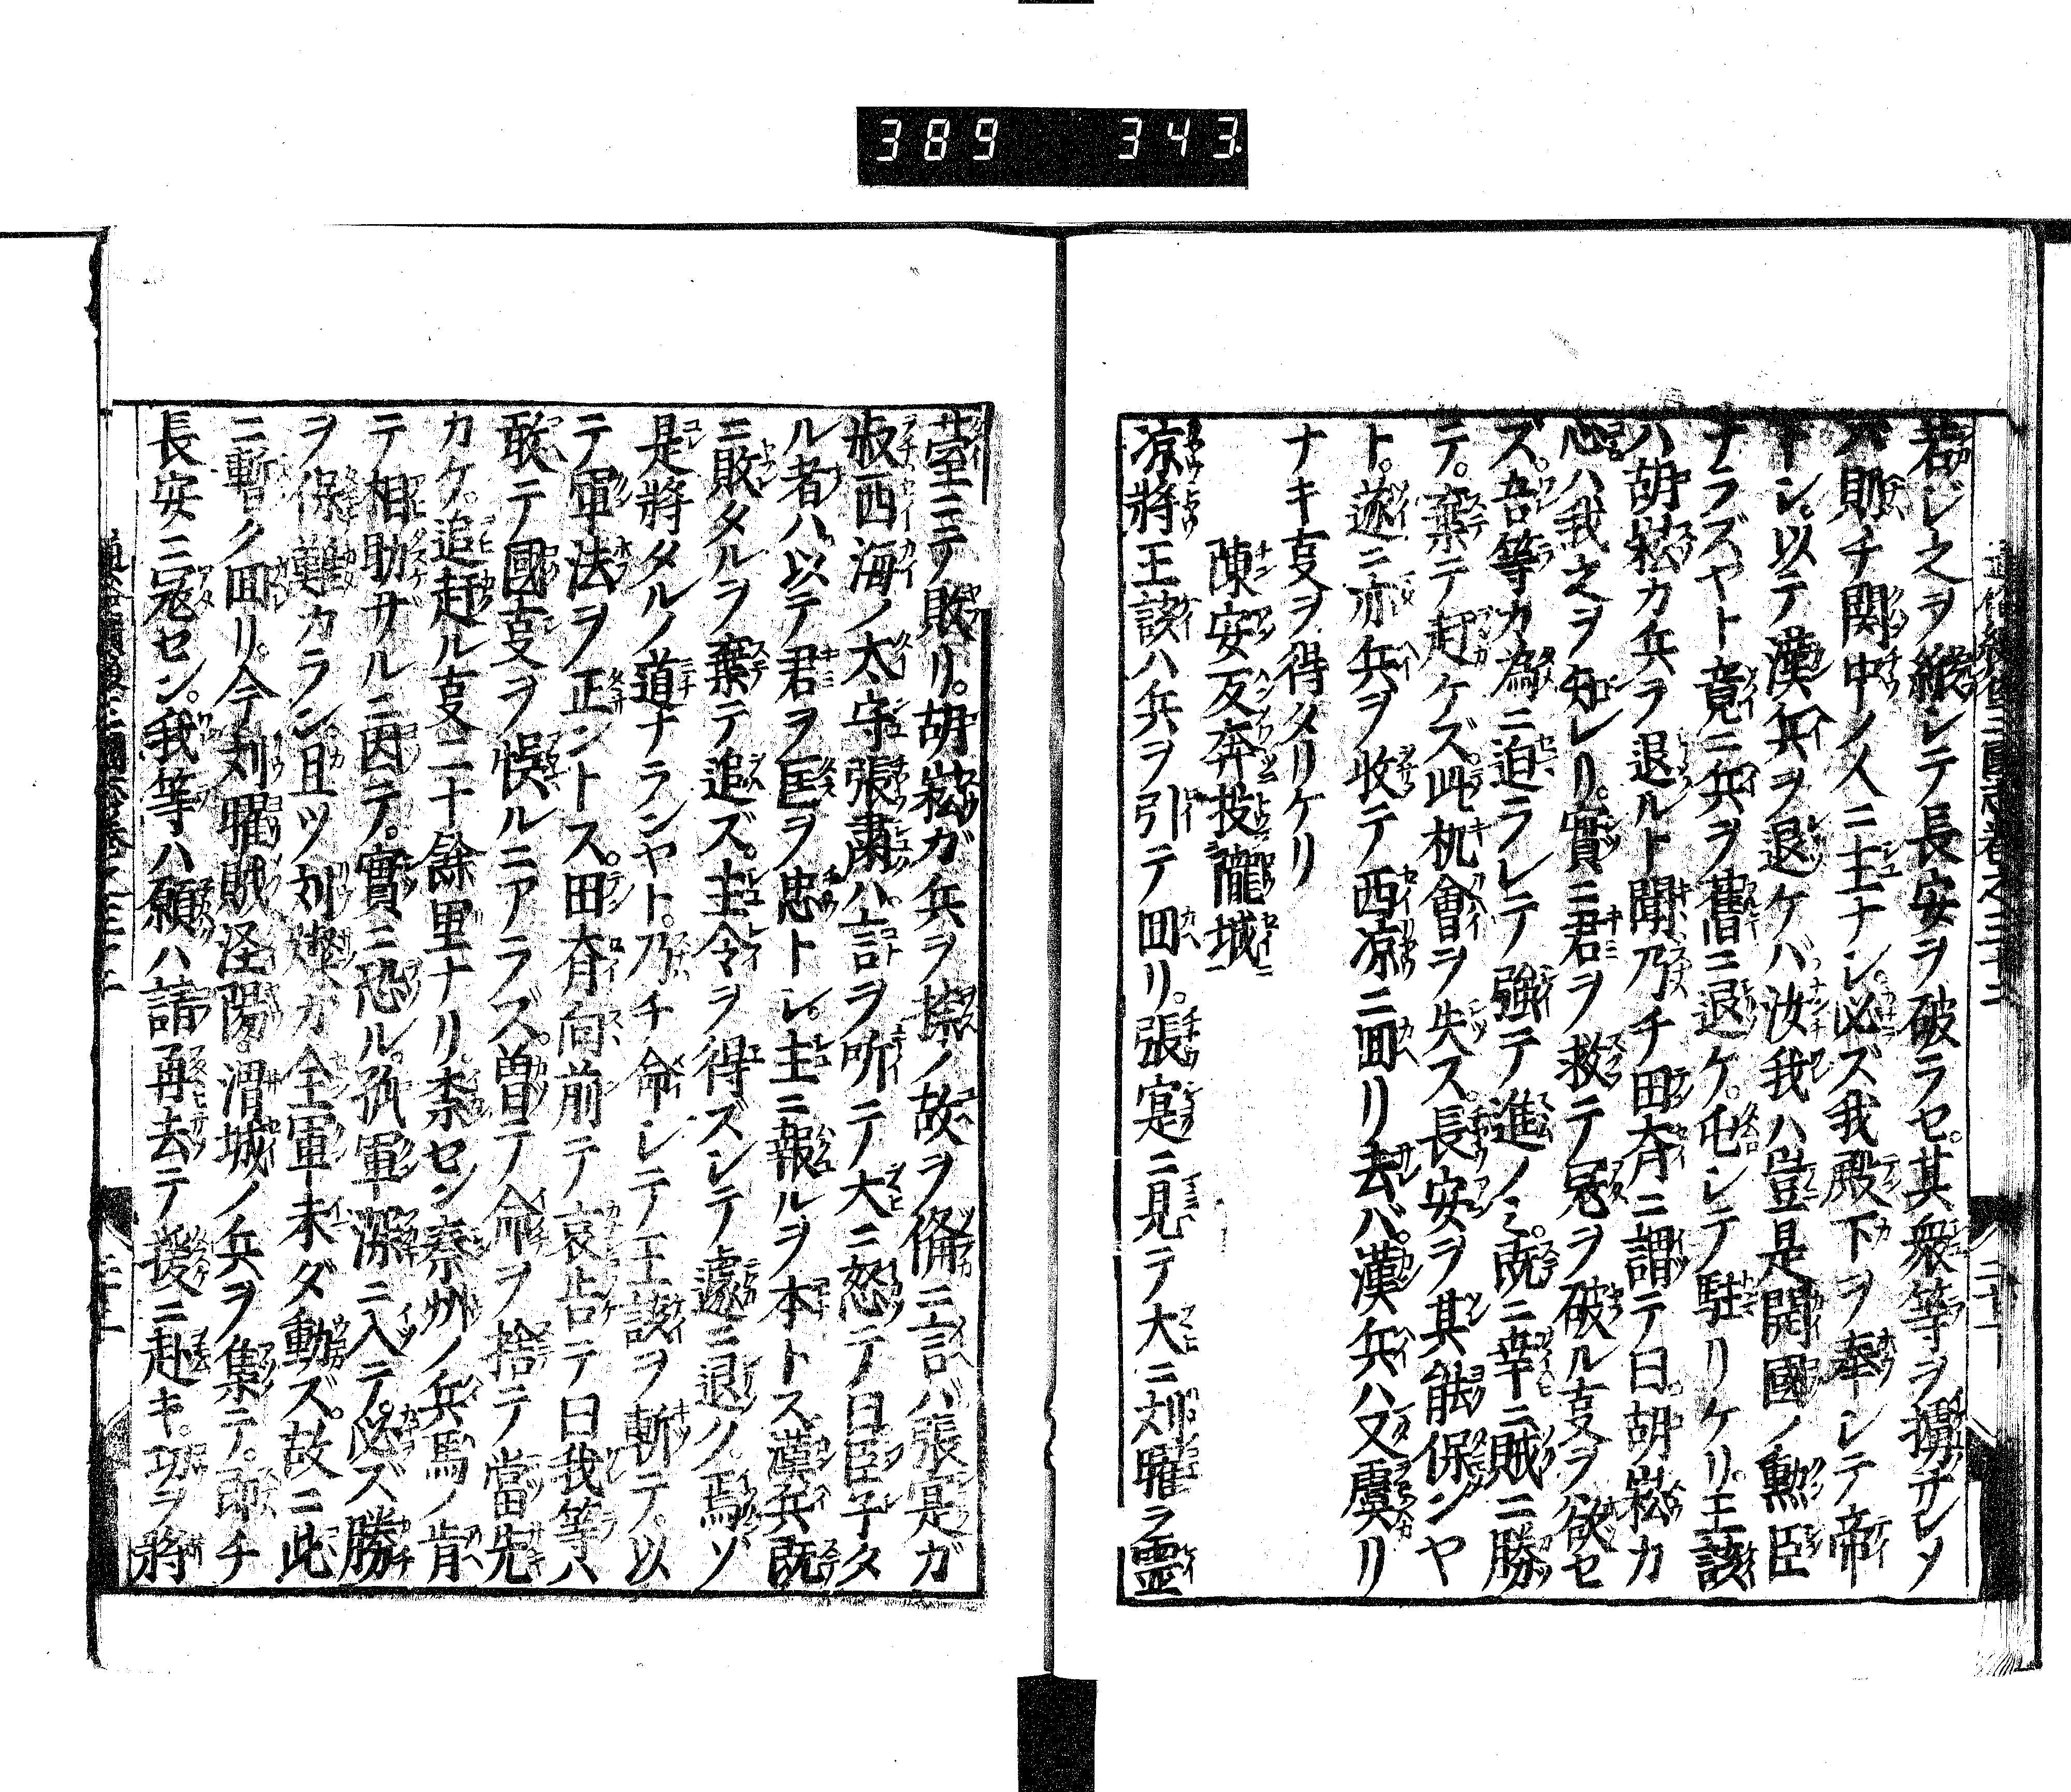 389 343
若シ之ヲ縱シテ長安ヲ破ラセ其衆等ヲ擄サレメ
バ則チ関中ノ人ニ主ナシ必ズ我殿下ヲ奉シテ帝
トシ以テ漢兵ヲ退ケバ汝我ハ豈是開國ノ勲臣
ナラズヤト竟ニ兵ヲ舊ニ退ケ屯シテ駐リケリ王該
ハ胡崧カ兵ヲ退ルト聞乃チ田斉ニ謂テ曰胡崧カ
心ハ我之ヲ知レリ實ニ君ヲ救テ冦ヲ破ル㕝ヲ欲セ
ズ吾等カ為ニ迫ラレテ強テ進ノミ既ニ幸ニ賊ニ勝
テ棄テ赶ケズ此机會ヲ失ス長安ヲ其能保ンヤ
ト遂ニ亦兵ヲ收テ西凉ニ回リ去バ漢兵ハ又虞リ
ナキ㕝ヲ得タリケリ
陳安反奔投隴城
凉將王該ハ兵ヲ引テ回リ張寔ニ見テ大ニ刘曜ヲ霊
臺ニテ敗リ胡崧ガ兵ヲ擦ノ故ヲ備ニ訁バ張寔ガ
叔西海ノ太守張肅ハ言ヲ听テ大ニ怒テ曰臣子タ
ル者ハ以テ君ヲ匡ヲ忠トシ主ニ報ルヲ本トス漢兵既
ニ敗タルヲ棄テ追ズ主令ヲ得ズシテ遽ニ退ク焉ゾ
是將タルノ道ナランヤト乃チ命シテ王該ヲ斬テ以
テ軍法ヲ正ントス田斉向前テ哀告テ曰我等ハ
敢テ國㕝ヲ悞ルニアラズ曽テ命ヲ捨テ當先
カケ追赶ル㕝二十餘里ナリ柰セン秦州ノ兵馬ノ肯
テ相助サルニ因テ實ニ恐ル孤軍深ニ入テ必ズ勝
ヲ保難カラン且ツ刘燦カ全軍未ダ動ズ故ニ此
ニ暫ク回リ今刘曜賊涇陽渭城ノ兵ヲ集テ即チ
長安ニ冦セン我等ハ願ハ請再去テ援ニ赴キ功ヲ將